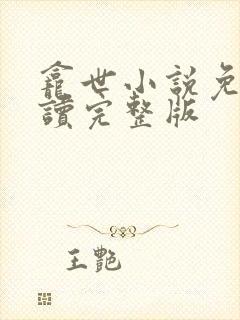 龕世小说免
讀完整版
王艷